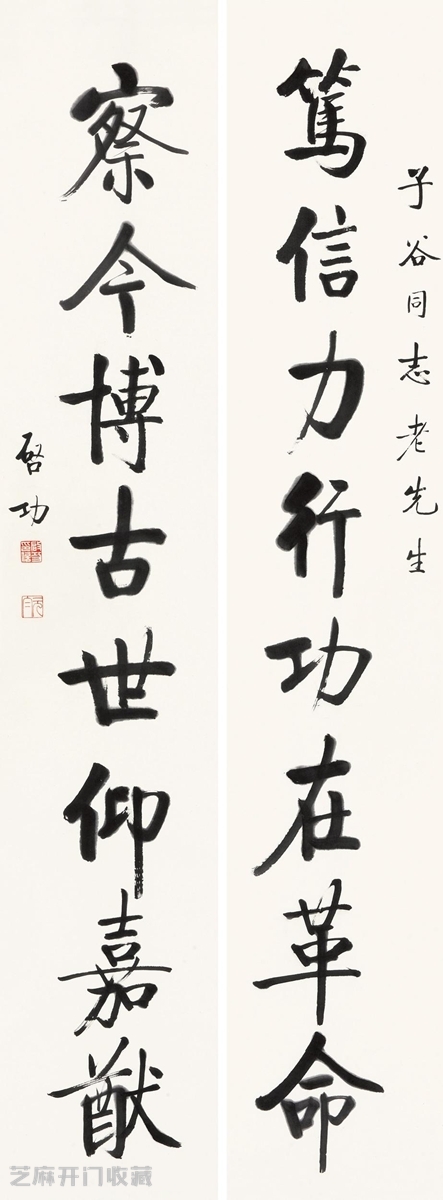 子谷同志老先生
篤信力行功在革命
察今博古世仰嘉猷
啓功
芝麻开门收藏